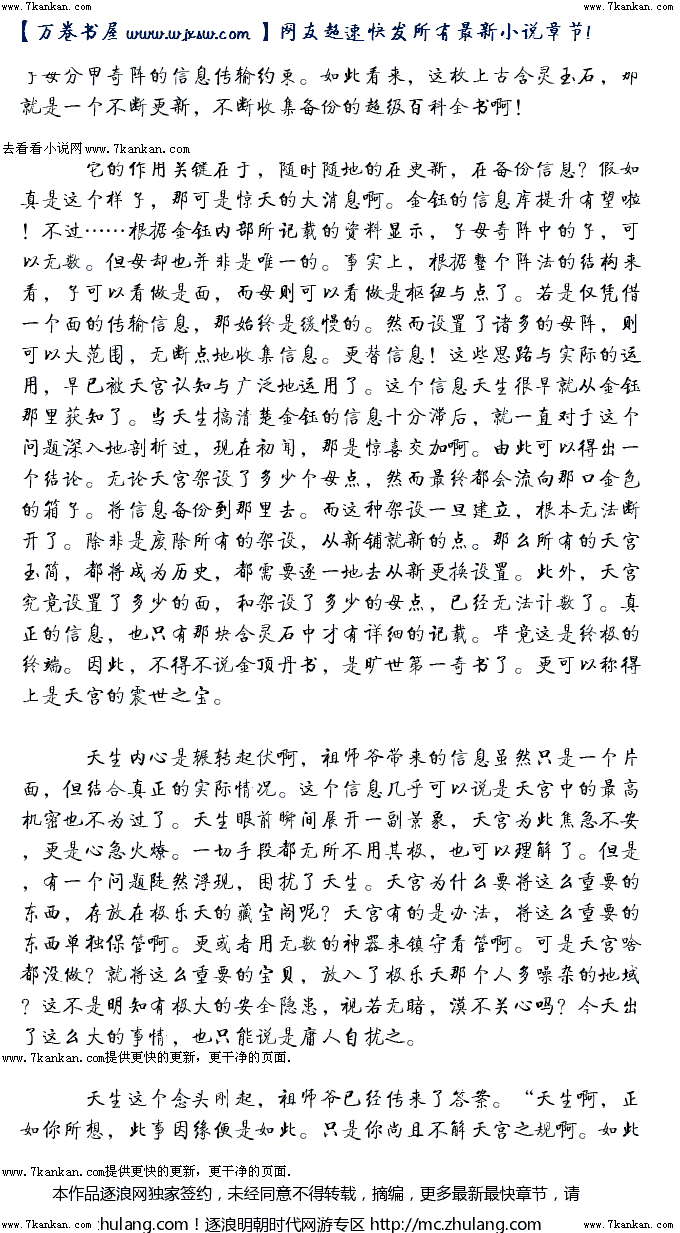 www.7kankan.com www.7kankan.com www.7kankan.com
【万卷书屋 www.wjxsw.com 】网友超速快发所有最新小说章节!
子母分甲奇阵的信息传输约束。如此看来，这枚上古含灵玉石，那
就是一个不断更新，不断收集备份的超级百科全书啊！
去看看小说网 www.7kankan.com
它的作用关键在于，随时随地的在更新，在备份信息？假如
真是这个样子，那可是惊天的大消息啊。金钰的信息库提升有望啦
！不过……根据金钰内部所记载的资料显示，子母奇阵中的子，可
以无数。但母却也并非是唯一的。事实上，根据整个阵法的结构来
看，子可以看做是面，而母则可以看做是枢纽与点了。若是仅凭借
一个面的传输信息，那始终是缓慢的。然而设置了诸多的母阵，则
可以大范围，无断点地收集信息。更替信息！这些思路与实际的运
用，早已被天宫认知与广泛地运用了。这个信息天生很早就从金钰
那里获知了。当天生搞清楚金钰的信息十分滞后，就一直对于这个
问题深入地剖析过，现在初闻，那是惊喜交加啊。由此可以得出一
个结论。无论天宫架设了多少个母点，然而最终都会流向那口金色
的箱子。将信息备份到那里去。而这种架设一旦建立，根本无法断
开了。除非是废除所有的架设，从新铺就新的点。那么所有的天宫
玉简，都将成为历史，都需要逐一地去从新更换设置。此外，天宫
究竟设置了多少的面，和架设了多少的母点，已经无法计数了。真
正的信息，也只有那块含灵石中才有详细的记载。毕竟这是终极的
终端。因此，不得不说金顶丹书，是旷世第一奇书了。更可以称得
上是天宫的震世之宝。
天生内心是辗转起伏啊，祖师爷带来的信息虽然只是一个片
面，但结合真正的实际情况。这个信息几乎可以说是天宫中的最高
机密也不为过了。天生眼前瞬间展开一副景象，天宫为此焦急不安
，更是心急火燎。一切手段都无所不用其极，也可以理解了。但是
，有一个问题陡然浮现，困扰了天生。天宫为什么要将这么重要的
东西，存放在极乐天的藏宝阁呢？天宫有的是办法，将这么重要的
东西单独保管啊。更或者用无数的神器来镇守看管啊。可是天宫啥
都没做？就将这么重要的宝贝，放入了极乐天那个人多噪杂的地域
？这不是明知有极大的安全隐患，视若无睹，漠不关心吗？今天出
了这么大的事情，也只能说是庸人自扰之。
www.7kankan.com提供更快的更新，更干净的页面.
天生这个念头刚起，祖师爷已经传来了答案。“天生啊，正
如你所想，此事因缘便是如此。只是你尚且不解天宫之规啊。如此
www.7kankan.com提供更快的更新，更干净的页面.
本作品逐浪网独家签约，未经同意不得转载，摘编，更多最新最快章节，请
www.7kankan.com zhulang.com！逐浪明朝时代网游专区 http://mc.zhulang.com www.7kankan.com